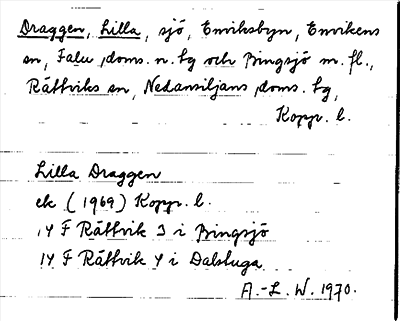 Draggen, Lilla, sjö, Enviksbyn, Envikens
sn, Falu doms. n. tg och Bingsjö m. fl.,
Rättviks sn, Nedansiljans doms. tg,
Kopp. l.
Lilla Draggen
ek (1969) Kopp. l.
14 F Rättvik 3 i Bingsjö
14 F Rättvik 4 i Dalstuga
A.-L. W. 1970.